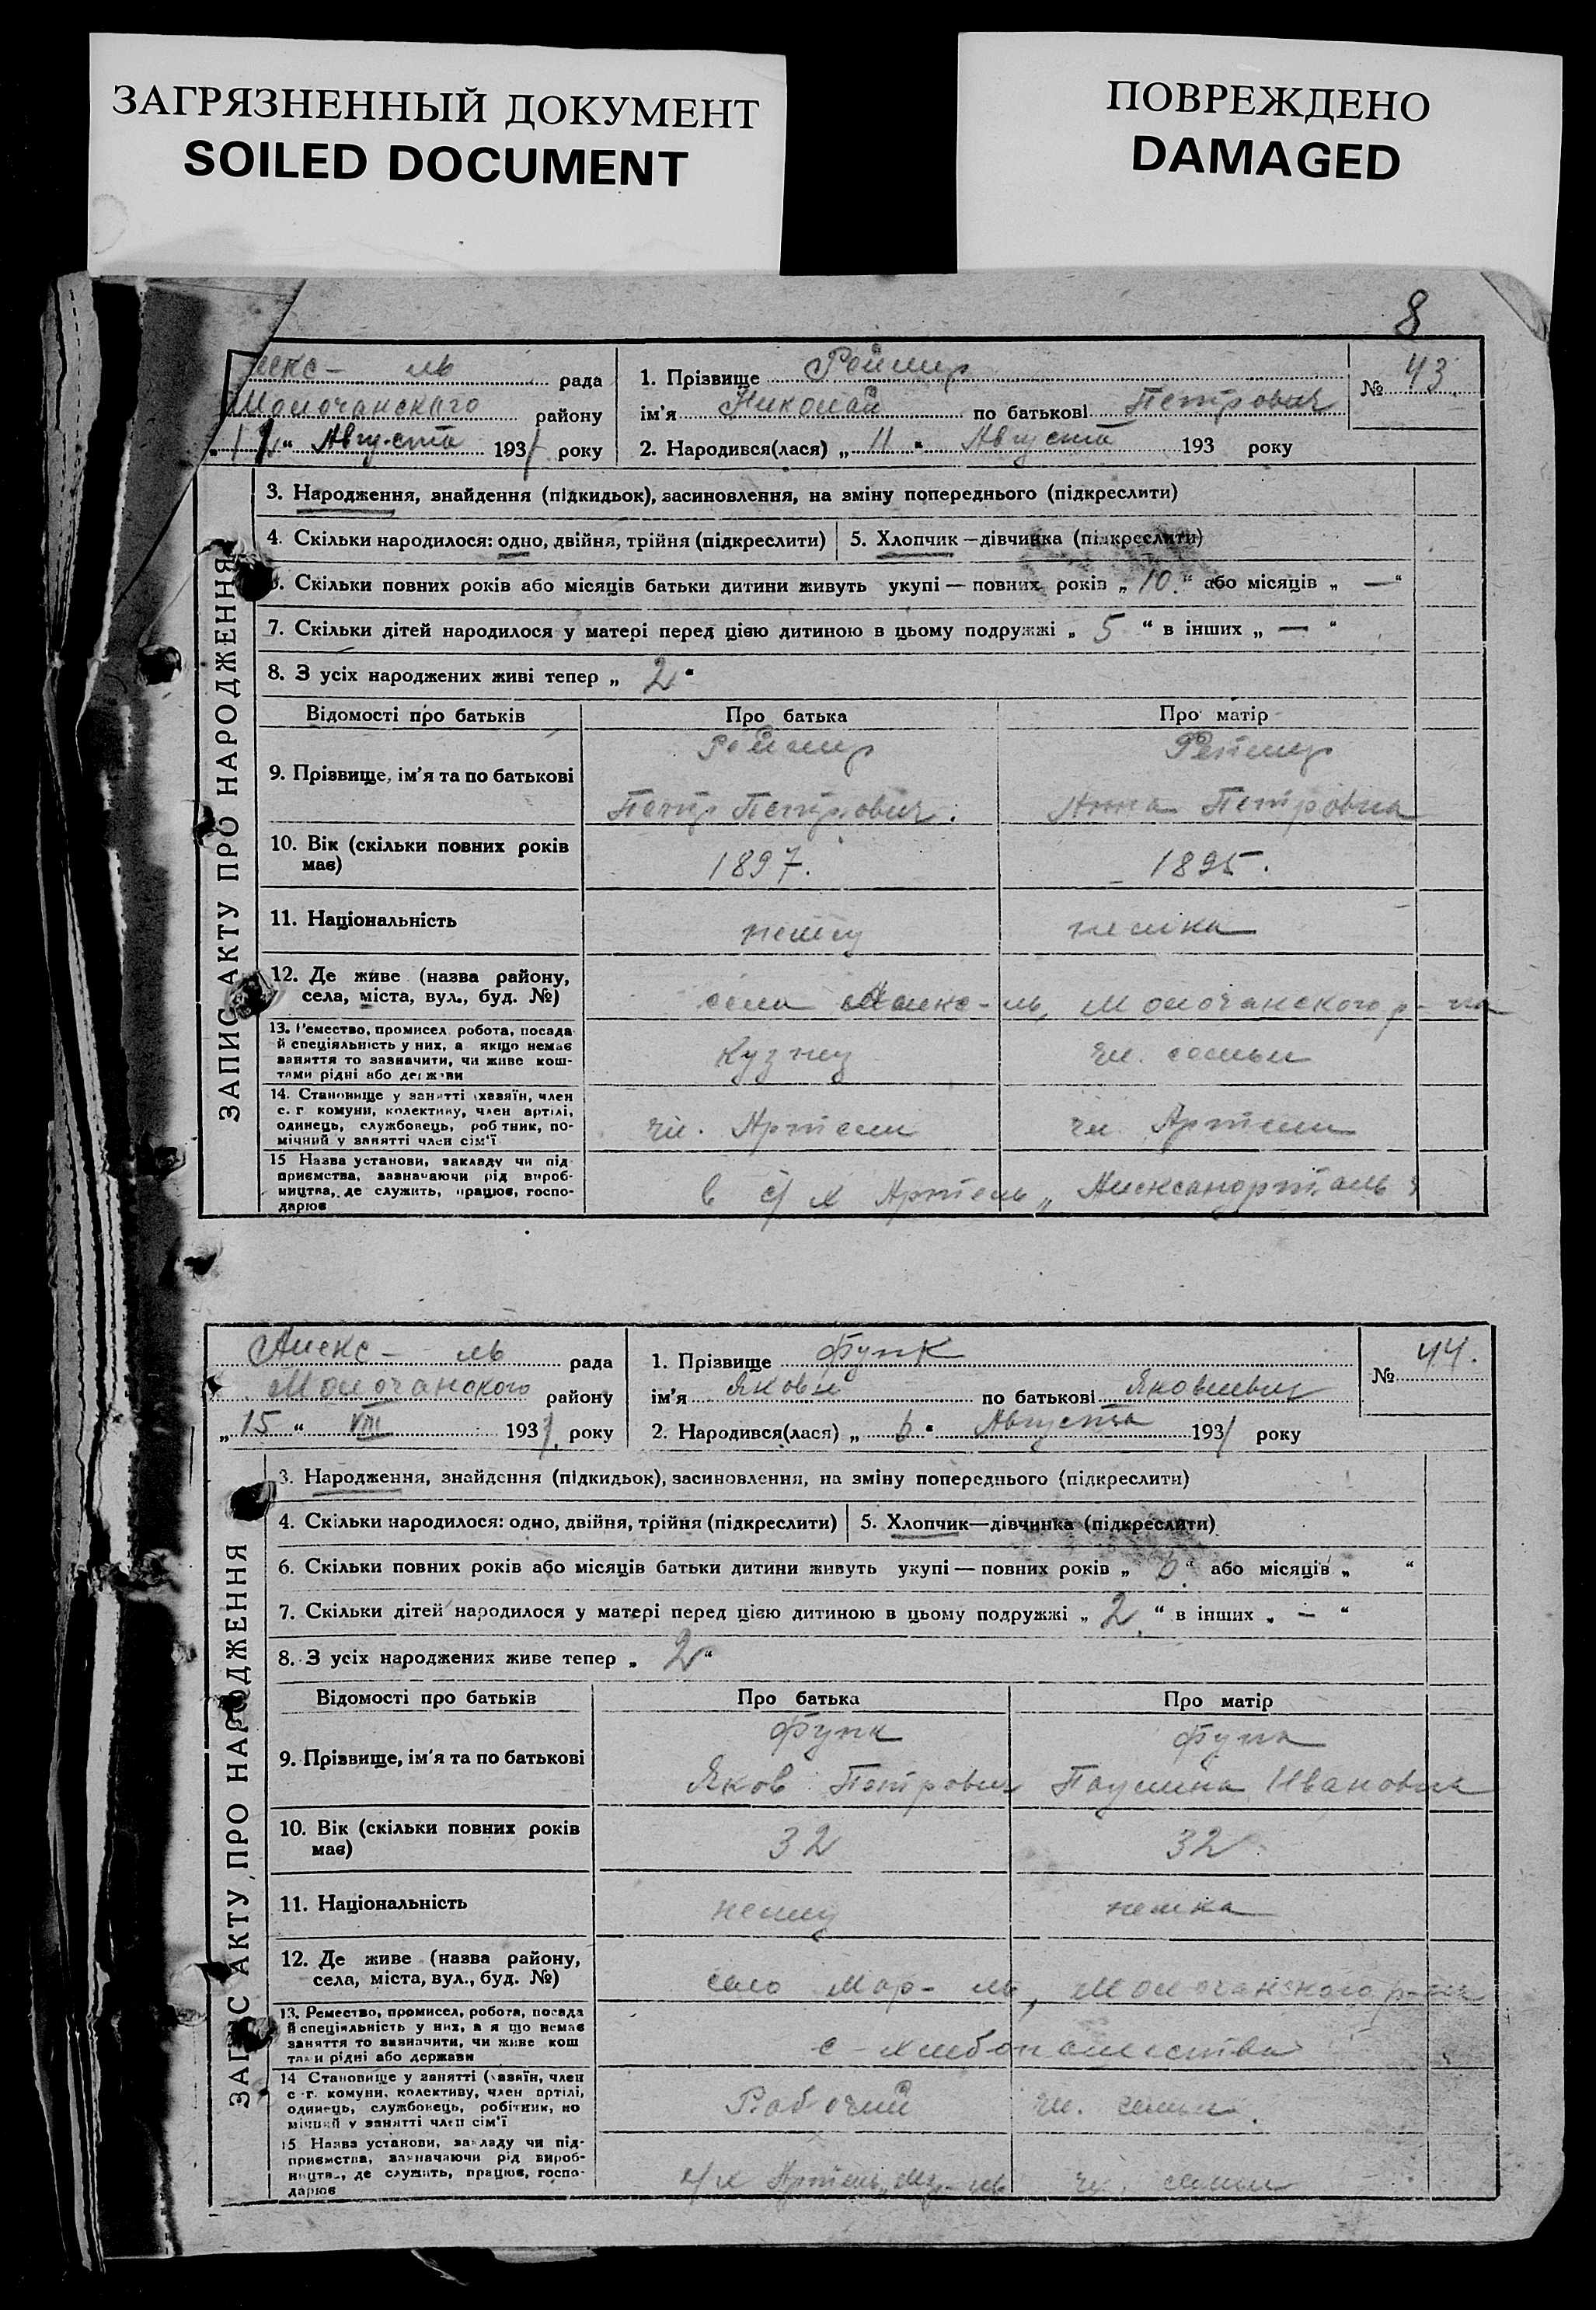 ЗАГРЯЗНЕННЫЙ ДОКУМЕНТ
SOILED DOCUMENT
ПОВРЕЖДЕНО
DAMAGED
8
ЗАПИС АКТУ ПРО НАРОДЖЕННЯ
лекс - ль рада
Молочанского району
Августа 1931 року
1. Прізвище Реймер
ім'я Николай по батькові Петрович
2. Народився(лася) „11" Августа 193 року
№ 43.
3. Народження, знайдення (підкидьок), засиновлення, на зміну попереднього (підкреслити)
4. Скільки народилося: одно, двійня, трійня (підкреслити) 5. Хлопчик — дівчинка (підкреслити)
6. Скільки повних років або місяців батьки дитини живуть укупі — повних років „10." або місяців „—"
7. Скільки дітей народилося у матері перед цією дитиною в цьому подружжі „5" в інших „—"
8. З усіх народжених живі тепер „2"
Відомості про батьків Про батька Про матір
9. Прізвище, ім'я та по батькові Реймер Петр Петрович. Реймер Анна Петровна
10. Вік (скільки повних років має) 1897. 1895.
11. Національність немец немка
12. Де живе (назва району, села, міста, вул., буд. №) село Алекс-ль, Молочанского р-на
13. Ремество, промисел, робота, посада й спеціяльність у них, а якщо немає заняття то зазначити, чи живе коштами рідні або держави Кузнец чл. семьи
14. Становище у занятті (хазяїн, член с. г. комуни, колективу, член артілі, одинець, службовець, робітник, помічний у занятті член сім'ї чл. Артели чл Артели
15 Назва установи, закладу чи підприємства, зазначаючи рід виробництва, де служить, працює, господарює в с/х Артель „Александрталь"
ЗАПИС АКТУ ПРО НАРОДЖЕННЯ
Алекс - ль рада
Молочанского району
„15" VIII 1931. року
1. Прізвище Функ
ім'я Яков по батькові Яковлевич
2. Народився(лася) „6" Августа 1931 року
№ 44.
3. Народження, знайдення (підкидьок), засиновлення, на зміну попереднього (підкреслити)
4. Скільки народилося: одно, двійня, трійня (підкреслити) 5. Хлопчик—дівчинка (підкреслити)
6. Скільки повних років або місяців батьки дитини живуть укупі — повних років „6." або місяців „ "
7. Скільки дітей народилося у матері перед цією дитиною в цьому подружжі „2." в інших „—"
8. З усіх народжених живе тепер „2"
Відомості про батьків Про батька Про матір
9. Прізвище, ім'я та по батькові Функ Яков Петрович Функ Паулина Ивановна
10. Вік (скільки повних років має) 32 32
11. Національність немец немка
12. Де живе (назва району, села, міста, вул., буд. №) село Мар-ль, Молочанского р-на
13. Ремество, промисел, робота, посада й спеціяльність у них, а якщо немає заняття то зазначити, чи живе коштами рідні або держави с - хлебопашества
14 Становище у занятті (хазяїн, член с.-г. комуни, колективу, член артілі, одинець, службовець, робітник, помічний у занятті член сім'ї Рабочий чл. семьи.
15 Назва установи, закладу чи підприємства, зазначаючи рід виробництва, де служить, працює, господарює с/х Артель чл. семьи